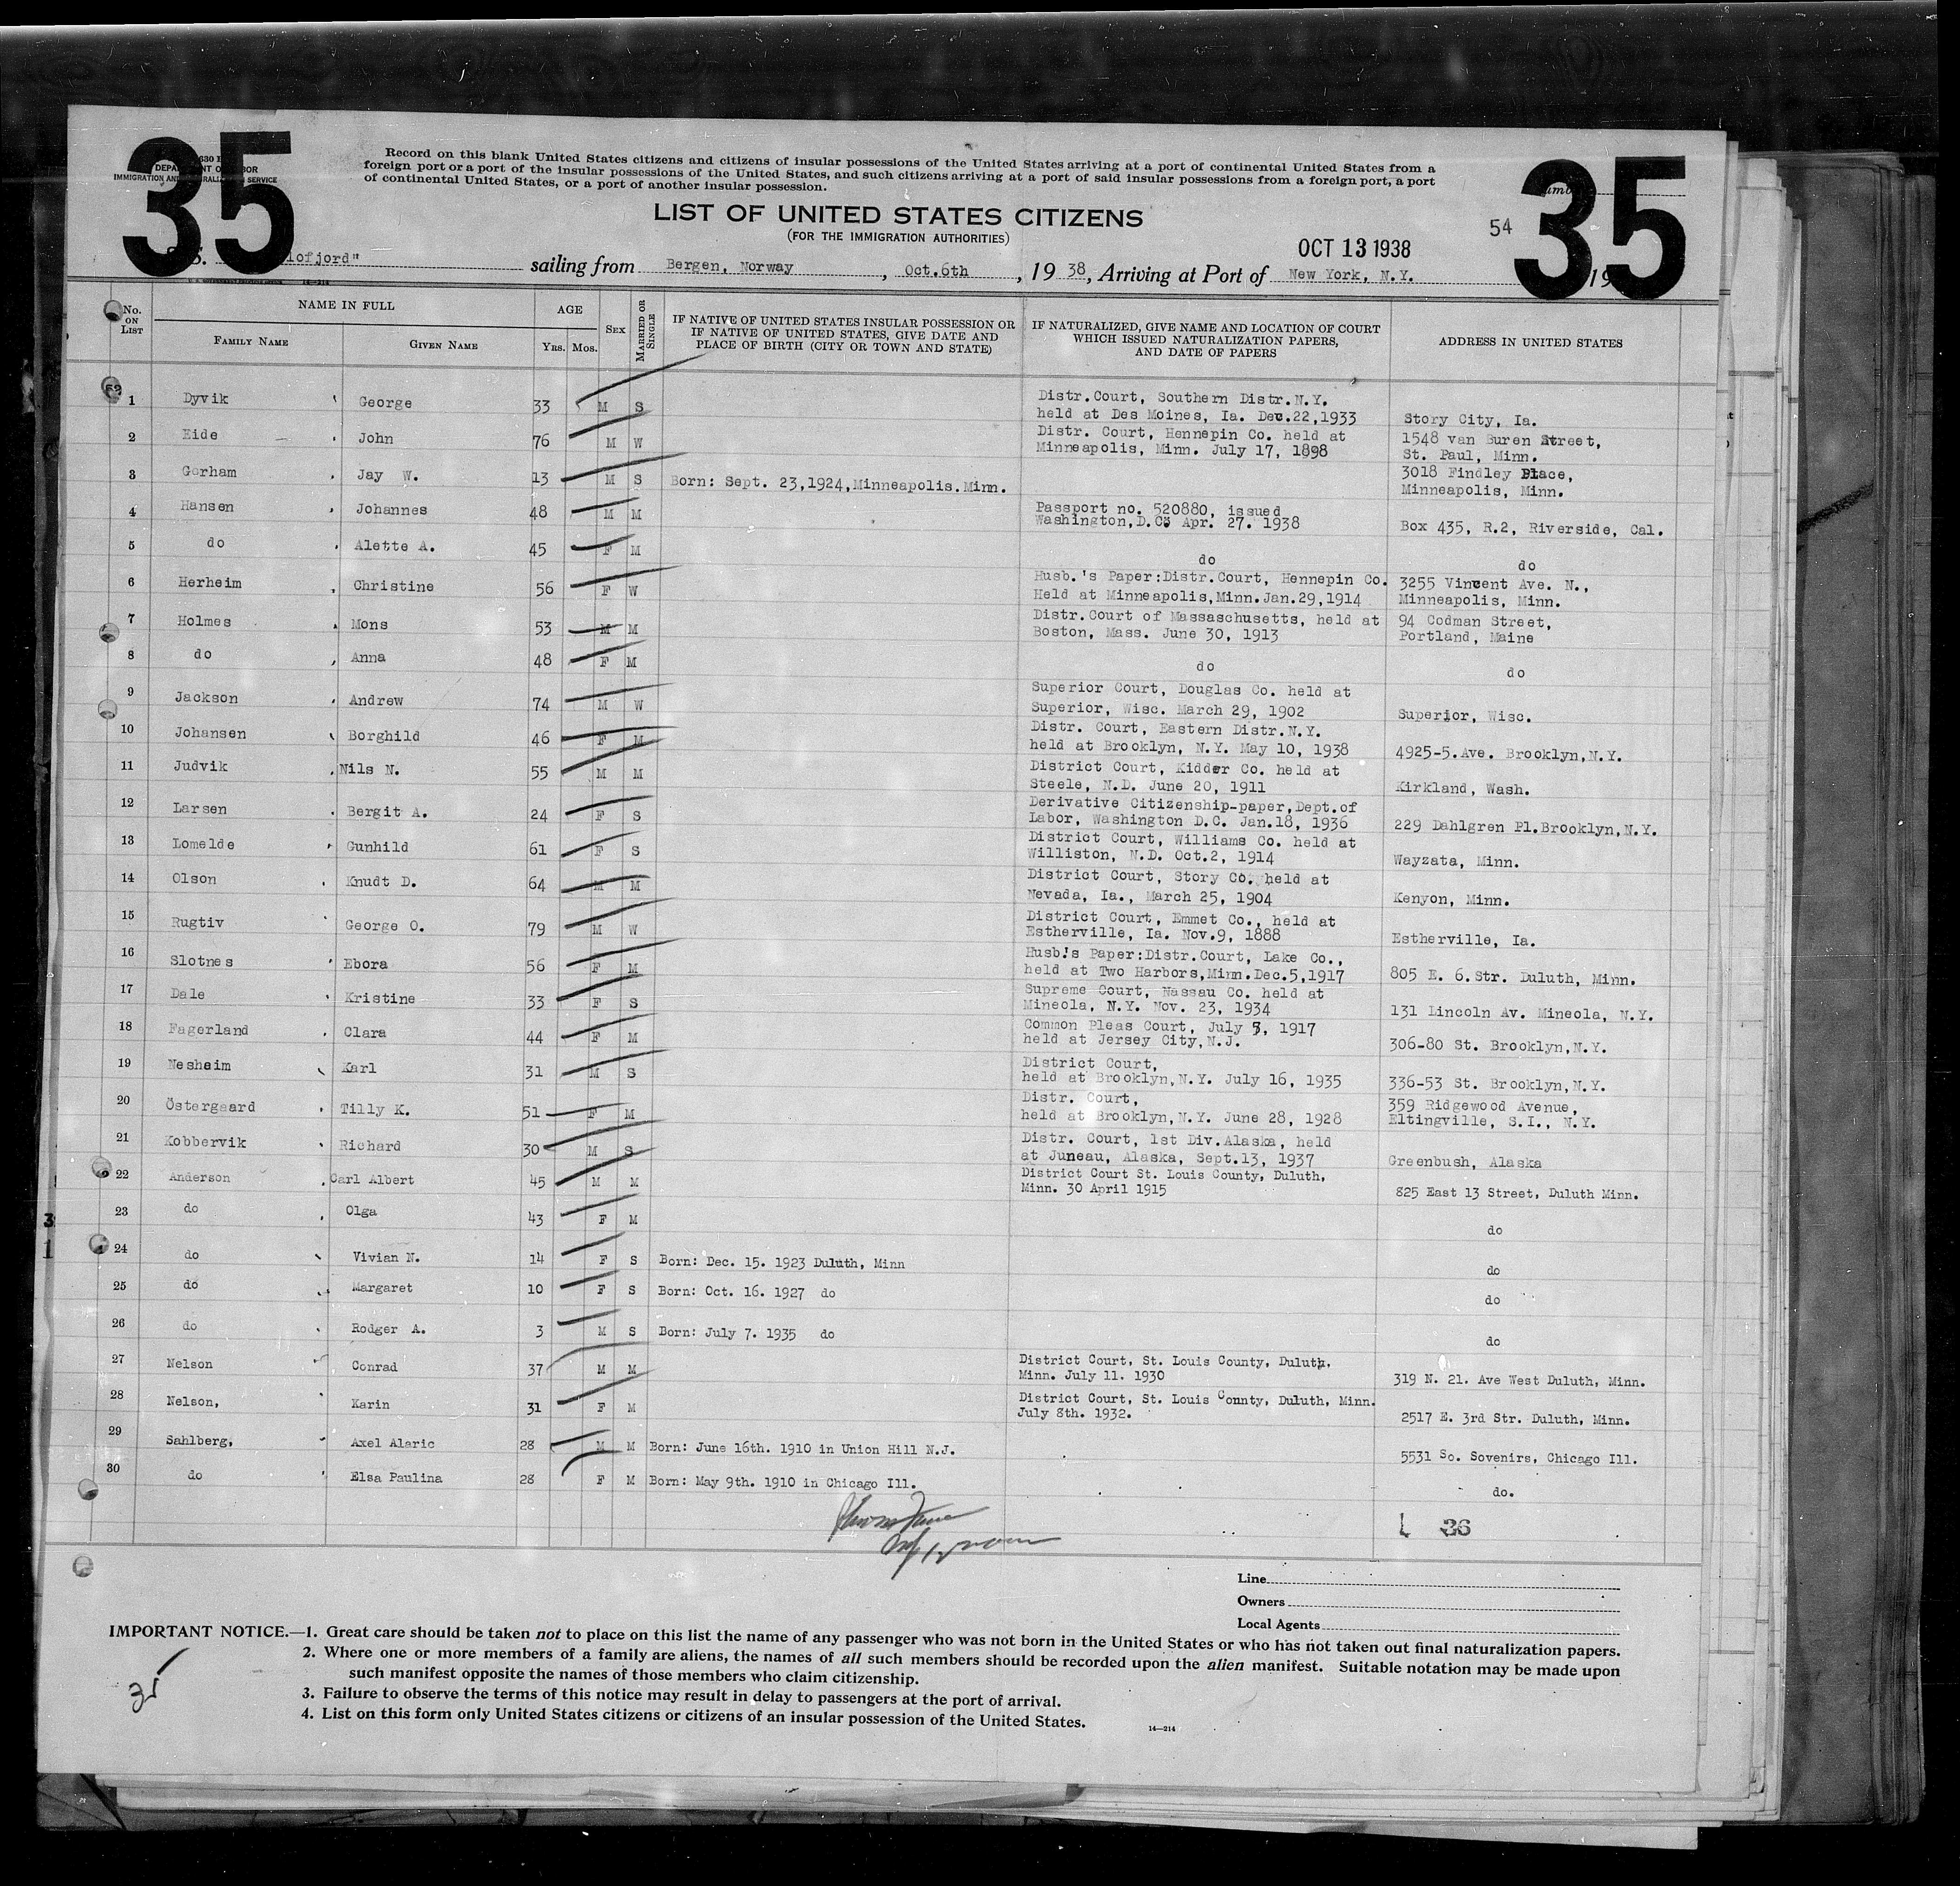 35
35
DEPARTMENT OF LABOR
IMMIGRATION AND NATURALIZATION SERVICE
Record on this blank United States citizens and citizens of insular possessions of the United States arriving at a port of continental United States from a
foreign port or a port of the insular possessions of the United States, and such citizens arriving at a port of said insular possessions from a foreign port, a port
of continental United States, or a port of another insular possession.
LIST OF UNITED STATES CITIZENS
(FOR THE IMMIGRATION AUTHORITIES)
54
OCT 13 1938
S. lofjord" sailing from Bergen, Norway, Oct.6th, 1938, Arriving at Port of New York, N.Y. 19
No. ON LIST
NAME IN FULL
FAMILY NAME GIVEN NAME
AGE
YRS. MOS.
SEX
MARRIED OR SINGLE
IF NATIVE OF UNITED STATES INSULAR POSSESSION OR
IF NATIVE OF UNITED STATES, GIVE DATE AND
PLACE OF BIRTH (CITY OR TOWN AND STATE)
IF NATURALIZED, GIVE NAME AND LOCATION OF COURT
WHICH ISSUED NATURALIZATION PAPERS,
AND DATE OF PAPERS
ADDRESS IN UNITED STATES
1 Dyvik George 33 M S Distr.Court, Southern Distr.N.Y.
held at Des Moines, Ia. Dec.22,1933 Story City, Ia.
2 Eide John 76 M W Distr. Court, Hennepin Co. held at 1548 van Buren Street,
Minneapolis, Minn. July 17, 1898 St. Paul, Minn.
3 Gorham Jay W. 13 M S Born: Sept. 23,1924,Minneapolis.Minn. 3018 Findley Place,
Minneapolis, Minn.
4 Hansen Johannes 48 M M Passport no. 520880, issued
Washington,D.C. Apr. 27. 1938 Box 435, R.2, Riverside, Cal.
5 do Alette A. 45 F M do do
6 Herheim Christine 56 F W Husb.'s Paper:Distr.Court, Hennepin Co. 3255 Vincent Ave. N.,
Held at Minneapolis,Minn.Jan.29,1914 Minneapolis, Minn.
7 Holmes Mons 53 M M Distr.Court of Massaschusetts, held at 94 Codman Street,
Boston, Mass. June 30, 1913 Portland, Maine
8 do Anna 48 F M do do
9 Jackson Andrew 74 M W Superior Court, Douglas Co. held at
Superior, Wisc. March 29, 1902 Superior, Wisc.
10 Johansen Borghild 46 F M Distr. Court, Eastern Distr.N.Y.
held at Brooklyn, N.Y. May 10, 1938 4925-5.Ave. Brooklyn,N.Y.
11 Judvik Nils N. 55 M M District Court, Kidder Co. held at
Steele, N.D. June 20, 1911 Kirkland, Wash.
12 Larsen Bergit A. 24 F S Derivative Citizenship-paper,Dept.of
Labor, Washington D.C. Jan.18, 1936 229 Dahlgren Pl.Brooklyn,N.Y.
13 Lomelde Gunhild 61 F S District Court, Williams Co. held at
Williston, N.D. Oct.2, 1914 Wayzata, Minn.
14 Olson Knudt D. 64 M M District Court, Story Co. held at
Nevada, Ia., March 25, 1904 Kenyon, Minn.
15 Rugtiv George O. 79 M W District Court, Emmet Co., held at
Estherville, Ia. Nov.9, 1888 Estherville, Ia.
16 Slotnes Ebora 56 F M Husb.'s Paper:Distr.Court, Lake Co.,
held at Two Harbors,Minn.Dec.5,1917 805 E. 6.Str. Duluth, Minn.
17 Dale Kristine 33 F S Supreme Court, Nassau Co. held at
Mineola, N.Y. Nov. 23, 1934 131 Lincoln Av. Mineola, N.Y.
18 Fagerland Clara 44 F M Common Pleas Court, July 5, 1917
held at Jersey City,N.J. 306-80 St. Brooklyn,N.Y.
19 Nesheim Karl 31 M S District Court,
held at Brooklyn,N.Y. July 16, 1935 336-53 St. Brooklyn,N.Y.
20 Östergaard Tilly K. 51 F M Distr. Court, 359 Ridgewood Avenue,
held at Brooklyn,N.Y. June 28, 1928 Eltingville, S.I., N.Y.
21 Kobbervik Richard 30 M S Distr. Court, 1st Div.Alaska, held
at Juneau, Alaska, Sept.13, 1937 Greenbush, Alaska
22 Anderson Carl Albert 45 M M District Court St. Louis County, Duluth,
Minn. 30 April 1915 825 East 13 Street, Duluth Minn.
23 do Olga 43 F M do
24 do Vivian N. 14 F S Born: Dec. 15. 1923 Duluth, Minn do
25 do Margaret 10 F S Born: Oct. 16. 1927 do do
26 do Rodger A. 3 M S Born: July 7. 1935 do do
27 Nelson Conrad 37 M M District Court, St. Louis County, Duluth,
Minn. July 11. 1930 319 N. 21. Ave West Duluth, Minn.
28 Nelson, Karin 31 F M District Court, St. Louis Connty, Duluth, Minn.
July 8th. 1932. 2517 E. 3rd Str. Duluth, Minn.
29 Sahlberg, Axel Alaric 28 M M Born: June 16th. 1910 in Union Hill N.J. 5531 So. Sovenirs, Chicago Ill.
30 do Elsa Paulina 28 F M Born: May 9th. 1910 in Chicago Ill. do.
L 36
Line
Owners
Local Agents
IMPORTANT NOTICE.—1. Great care should be taken not to place on this list the name of any passenger who was not born in the United States or who has not taken out final naturalization papers.
2. Where one or more members of a family are aliens, the names of all such members should be recorded upon the alien manifest. Suitable notation may be made upon
such manifest opposite the names of those members who claim citizenship.
3. Failure to observe the terms of this notice may result in delay to passengers at the port of arrival.
4. List on this form only United States citizens or citizens of an insular possession of the United States.
14—214
35